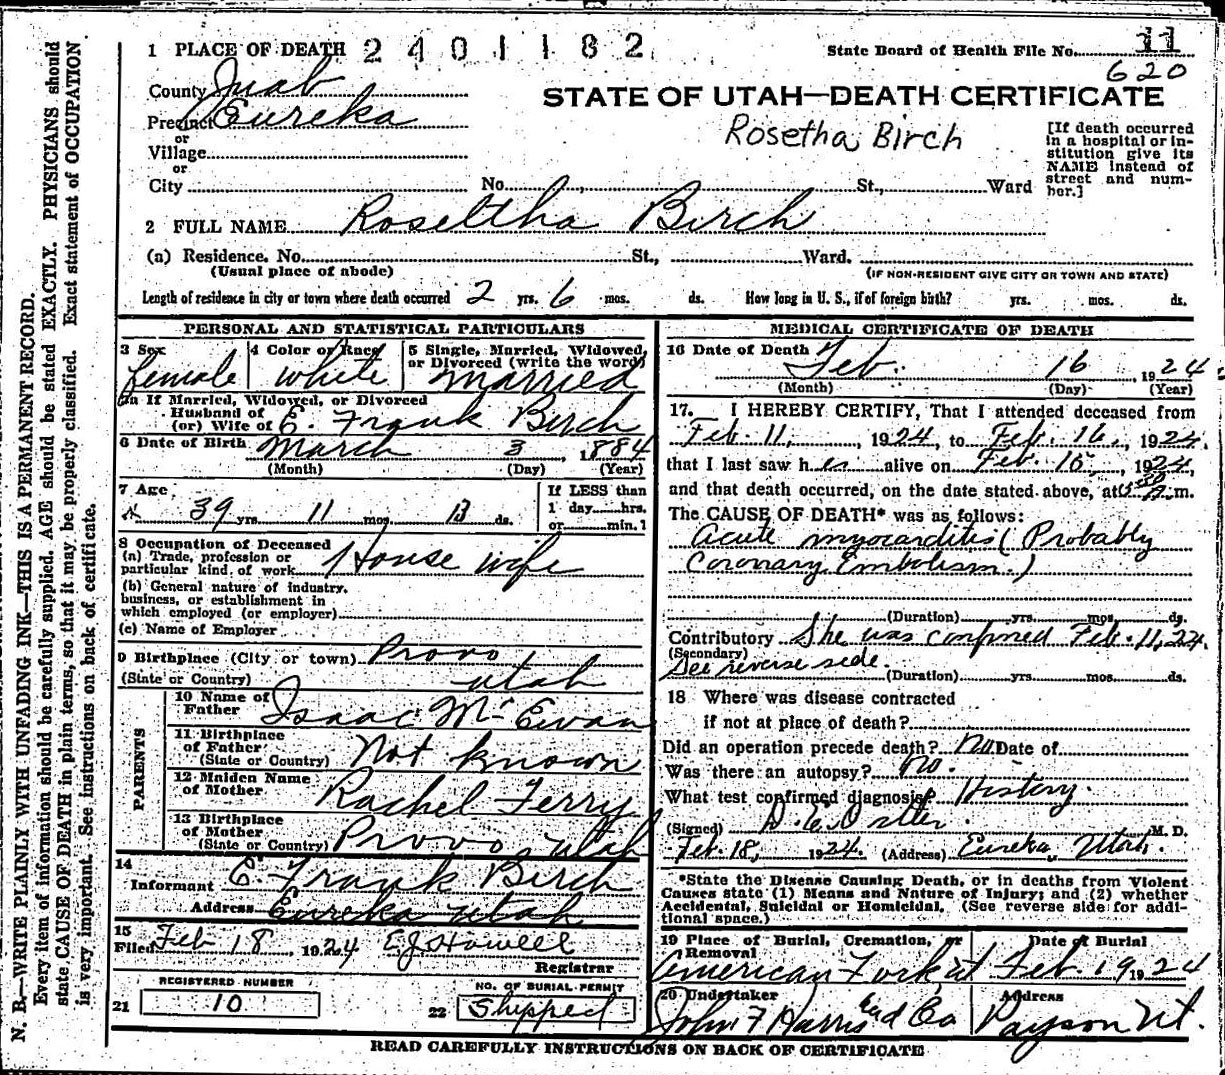 N. B.—WRITE PLAINLY WITH UNFADING INK—THIS IS A PERMANENT RECORD.
Every item of information should be carefully supplied. AGE should be stated EXACTLY. PHYSICIANS should
state CAUSE OF DEATH in plain terms, so that it may be properly classified. Exact statement of OCCUPATION
is very important. See instructions on back of certificate.
1 PLACE OF DEATH 2401182
State Board of Health File No. 11
620
County Juab
STATE OF UTAH—DEATH CERTIFICATE
Precinct Eureka
or
Village
or
City No. , St., Ward
Rosetha Birch
[If death occurred
in a hospital or in-
stitution give its
NAME instead of
street and num-
ber.]
2 FULL NAME Roseltha Birch
(a) Residence. No. St., Ward.
(Usual place of abode) (IF NON-RESIDENT GIVE CITY OR TOWN AND STATE)
Length of residence in city or town where death occurred 2 yrs. 6 mos. ds. How long in U. S., if of foreign birth? yrs. mos. ds.
PERSONAL AND STATISTICAL PARTICULARS
3 Sex 4 Color or Race 5 Single, Married, Widowed,
or Divorced (write the word)
female white married
5a If Married, Widowed, or Divorced
Husband of
(or) Wife of E. Frank Birch
6 Date of Birth March 3, 1884
(Month) (Day) (Year)
7 Age 39 yrs. 11 mos. 13 ds.
If LESS than
1 day hrs.
or min.?
8 Occupation of Deceased
(a) Trade, profession or
particular kind of work House wife
(b) General nature of industry,
business, or establishment in
which employed (or employer)
(c) Name of Employer
9 Birthplace (City or town) Provo,
(State or Country) Utah
PARENTS
10 Name of
Father Isaac McEwan
11 Birthplace
of Father
(State or Country) Not known
12 Maiden Name
of Mother Rachel Ferry
13 Birthplace
of Mother
(State or Country) Provo, Utah
14
Informant E. Frank Birch
Address Eureka Utah
15
Filed Feb 18, 1924 E J Howell
Registrar
21 REGISTERED NUMBER
10
22 NO. OF BURIAL PERMIT
Shipped
MEDICAL CERTIFICATE OF DEATH
16 Date of Death Feb. 16, 1924
(Month) (Day) (Year)
17. I HEREBY CERTIFY, That I attended deceased from
Feb. 11, 1924, to Feb. 16, 1924,
that I last saw her alive on Feb. 15, 1924,
and that death occurred, on the date stated above, at 5 30 A. m.
The CAUSE OF DEATH* was as follows:
Acute myocarditis (Probably
Coronary Embolism.)
(Duration) yrs. mos. ds.
Contributory She was confined Feb. 11, 24.
(Secondary)
See reverse side.
(Duration) yrs. mos. ds.
18 Where was disease contracted
if not at place of death?
Did an operation precede death? No Date of
Was there an autopsy? No.
What test confirmed diagnosis? History.
(Signed) M. D.
Feb. 18, 1924. (Address) Eureka, Utah.
*State the Disease Causing Death, or in deaths from Violent
Causes state (1) Means and Nature of Injury; and (2) whether
Accidental, Suicidal or Homicidal. (See reverse side for addi-
tional space.)
19 Place of Burial, Cremation, or
Removal Date of Burial
American Fork ut Feb. 19 1924
20 Undertaker Address
John F Harris and Co Payson Ut.
READ CAREFULLY INSTRUCTIONS ON BACK OF CERTIFICATE